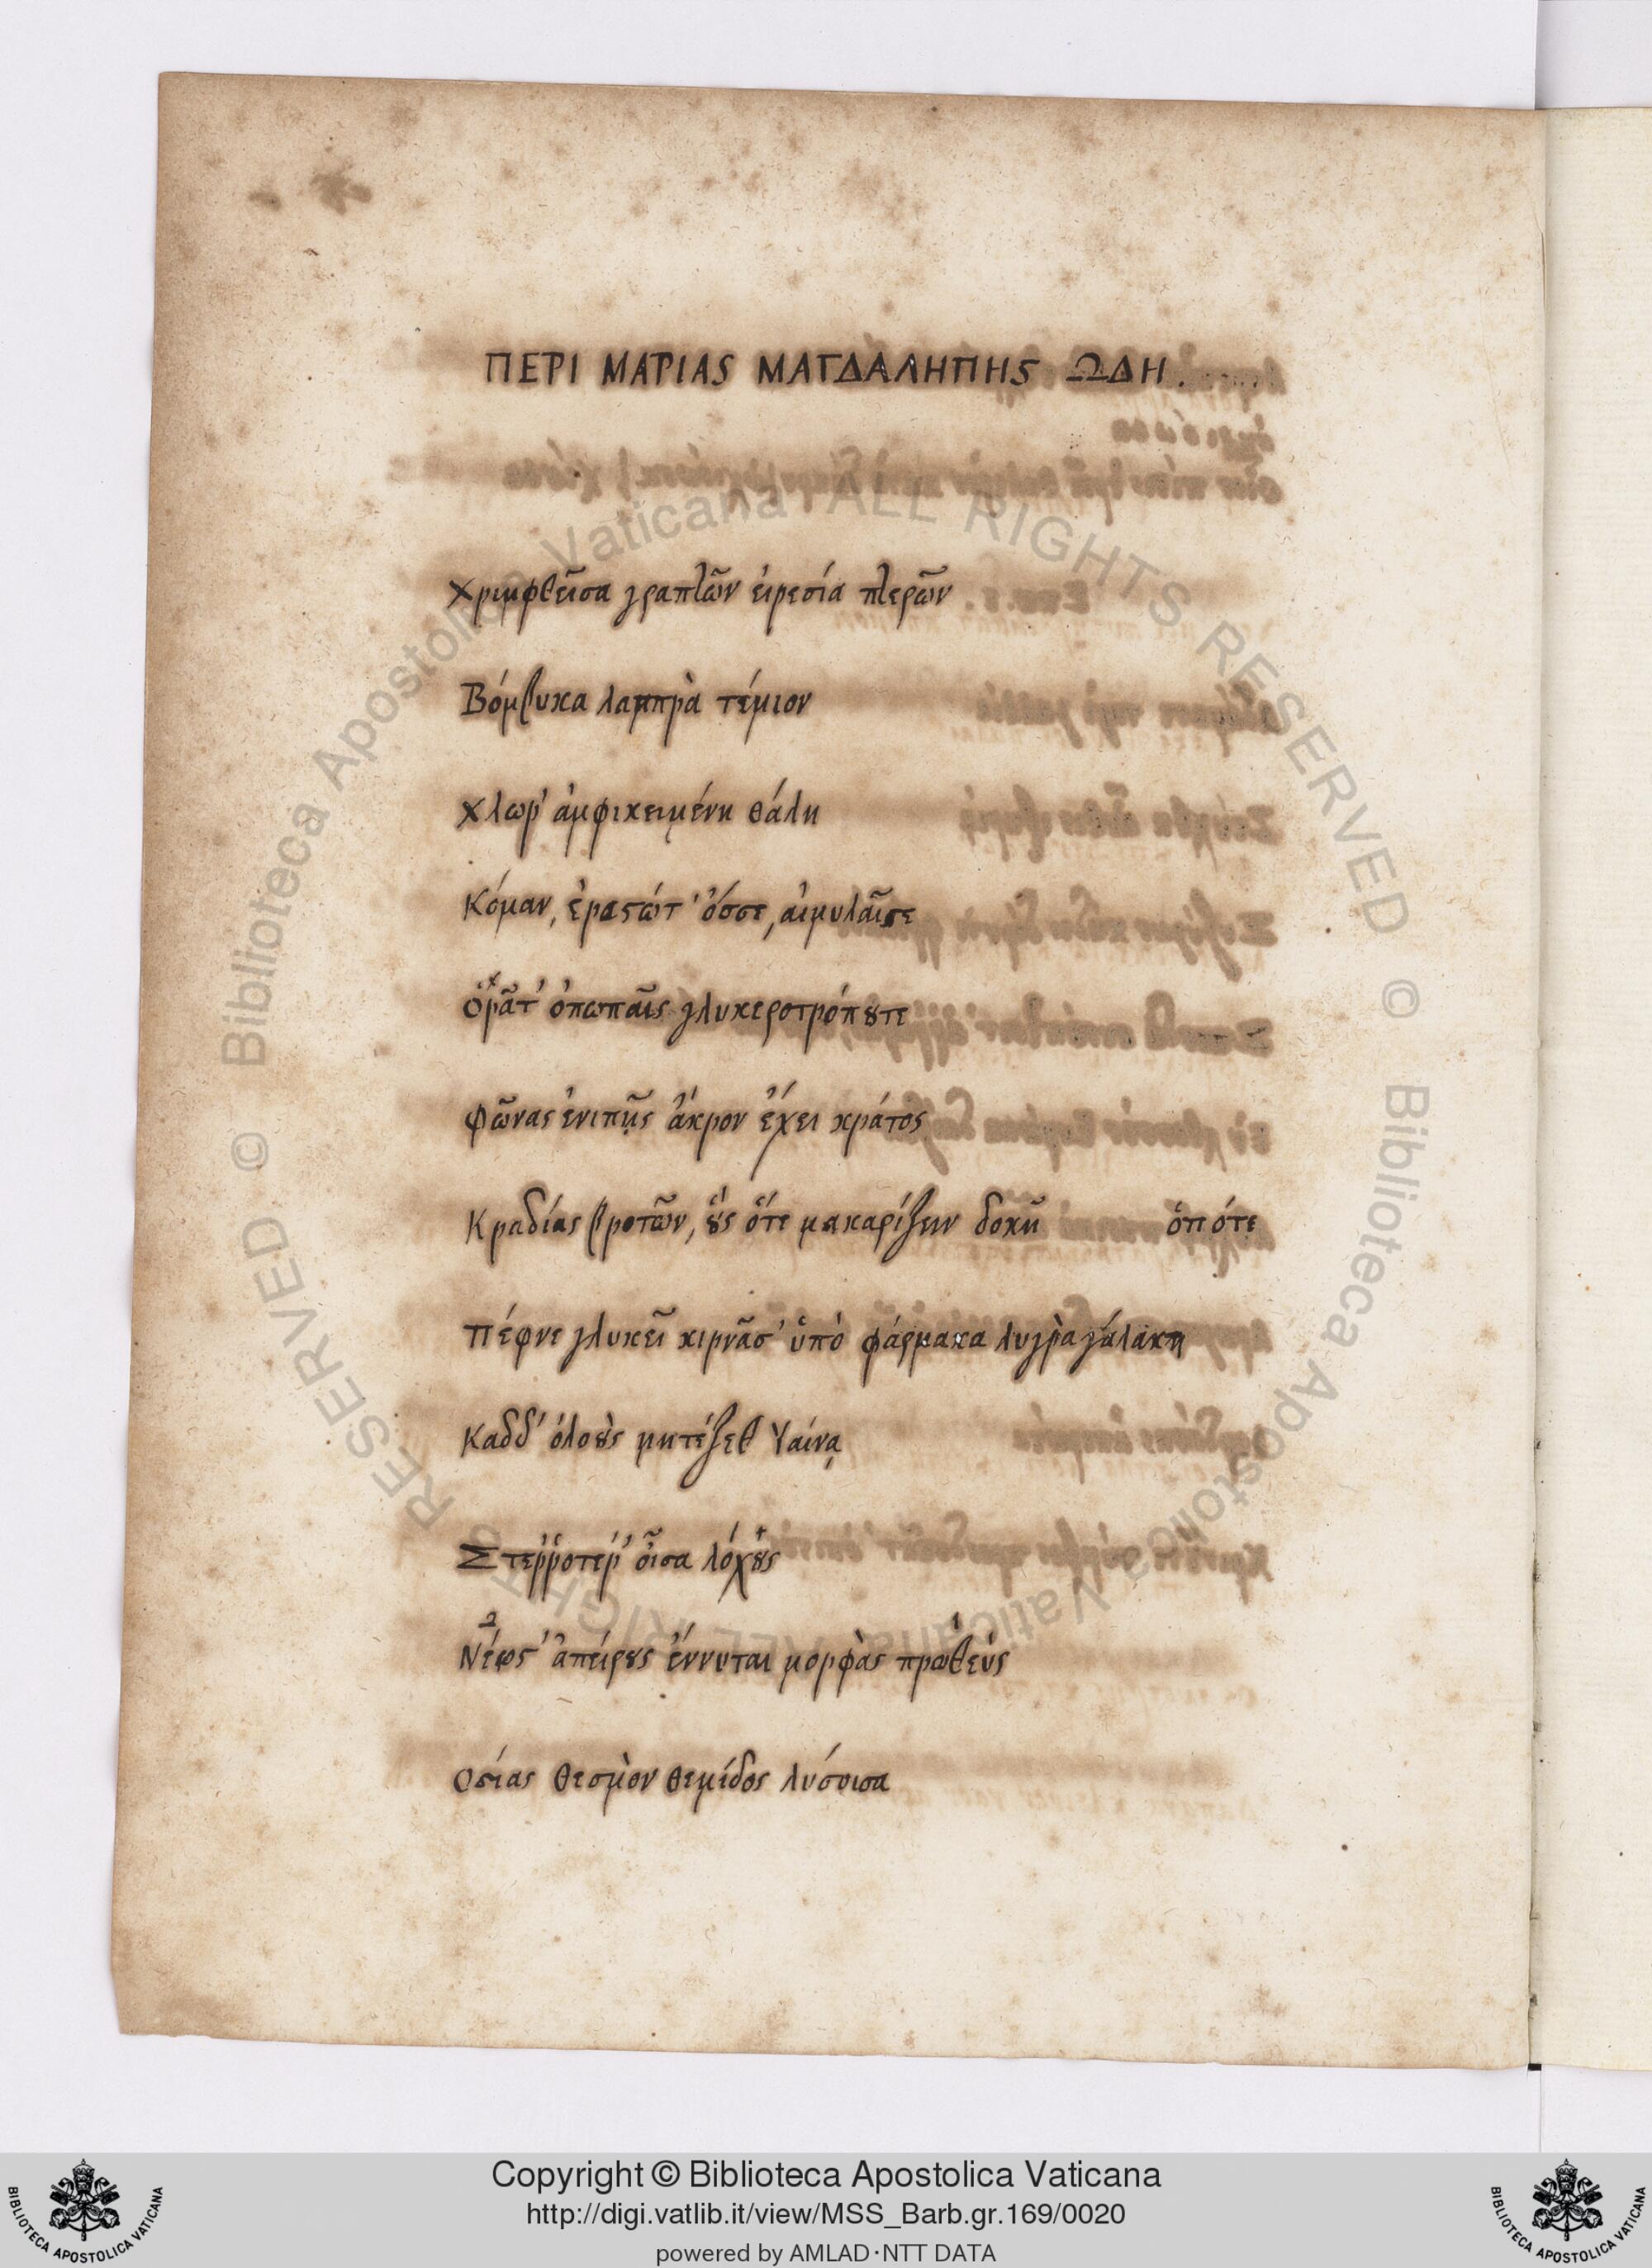 ΠΕΡΙ ΜΑΡΙΑΣ ΜΑΓΔΑΛΗΠΗΣ ΩΔΗ.
Χριμφθεῖσα γραπτῶν εἰρεσία πτερῶν
Βόμβυκα λαμπρὰ τέμιον
Χλωρ' ἀμφικειμένη θάλη
Κόμαν, ἐραστώτ' ὄσσε, αἱμυλαῖσε
ὁρᾶτ' ὀπωπαῖς γλυκεροτρόπουτε
Φῶνας ἐνιπῆς ἄκρον ἔχει κράτος
Κραδίας βροτῶν, οὓς ὅτε μακαρίζειν δοκῆ ὁπότε
Πέφνε γλυκεῖ κιρνᾶσ' ὑπὸ φάρμακα λυγρὰ γάλακτι
Καδδ' ὀλοοὺς μητέζεθ Υαίνᾳ
Στεῤῥοτέρ' οἶσα λόχους
ἀπείρους ἕννυται μορφὰς πρωθεὺς
Οσίας θεσμὸν θεμίδος λύσοισα
Copyright © Biblioteca Apostolica Vaticana
http://digi.vatlib.it/view/MSS_Barb.gr.169/0020
powered by AMLAD·NTT DATA
BIBLIOTECA APOSTOLICA VATICANA
BIBLIOTECA APOSTOLICA VATICANA
© Biblioteca Apostolica Vaticana ALL RIGHTS RESERVED
© Biblioteca Apostolica Vaticana ALL RIGHTS RESERVED